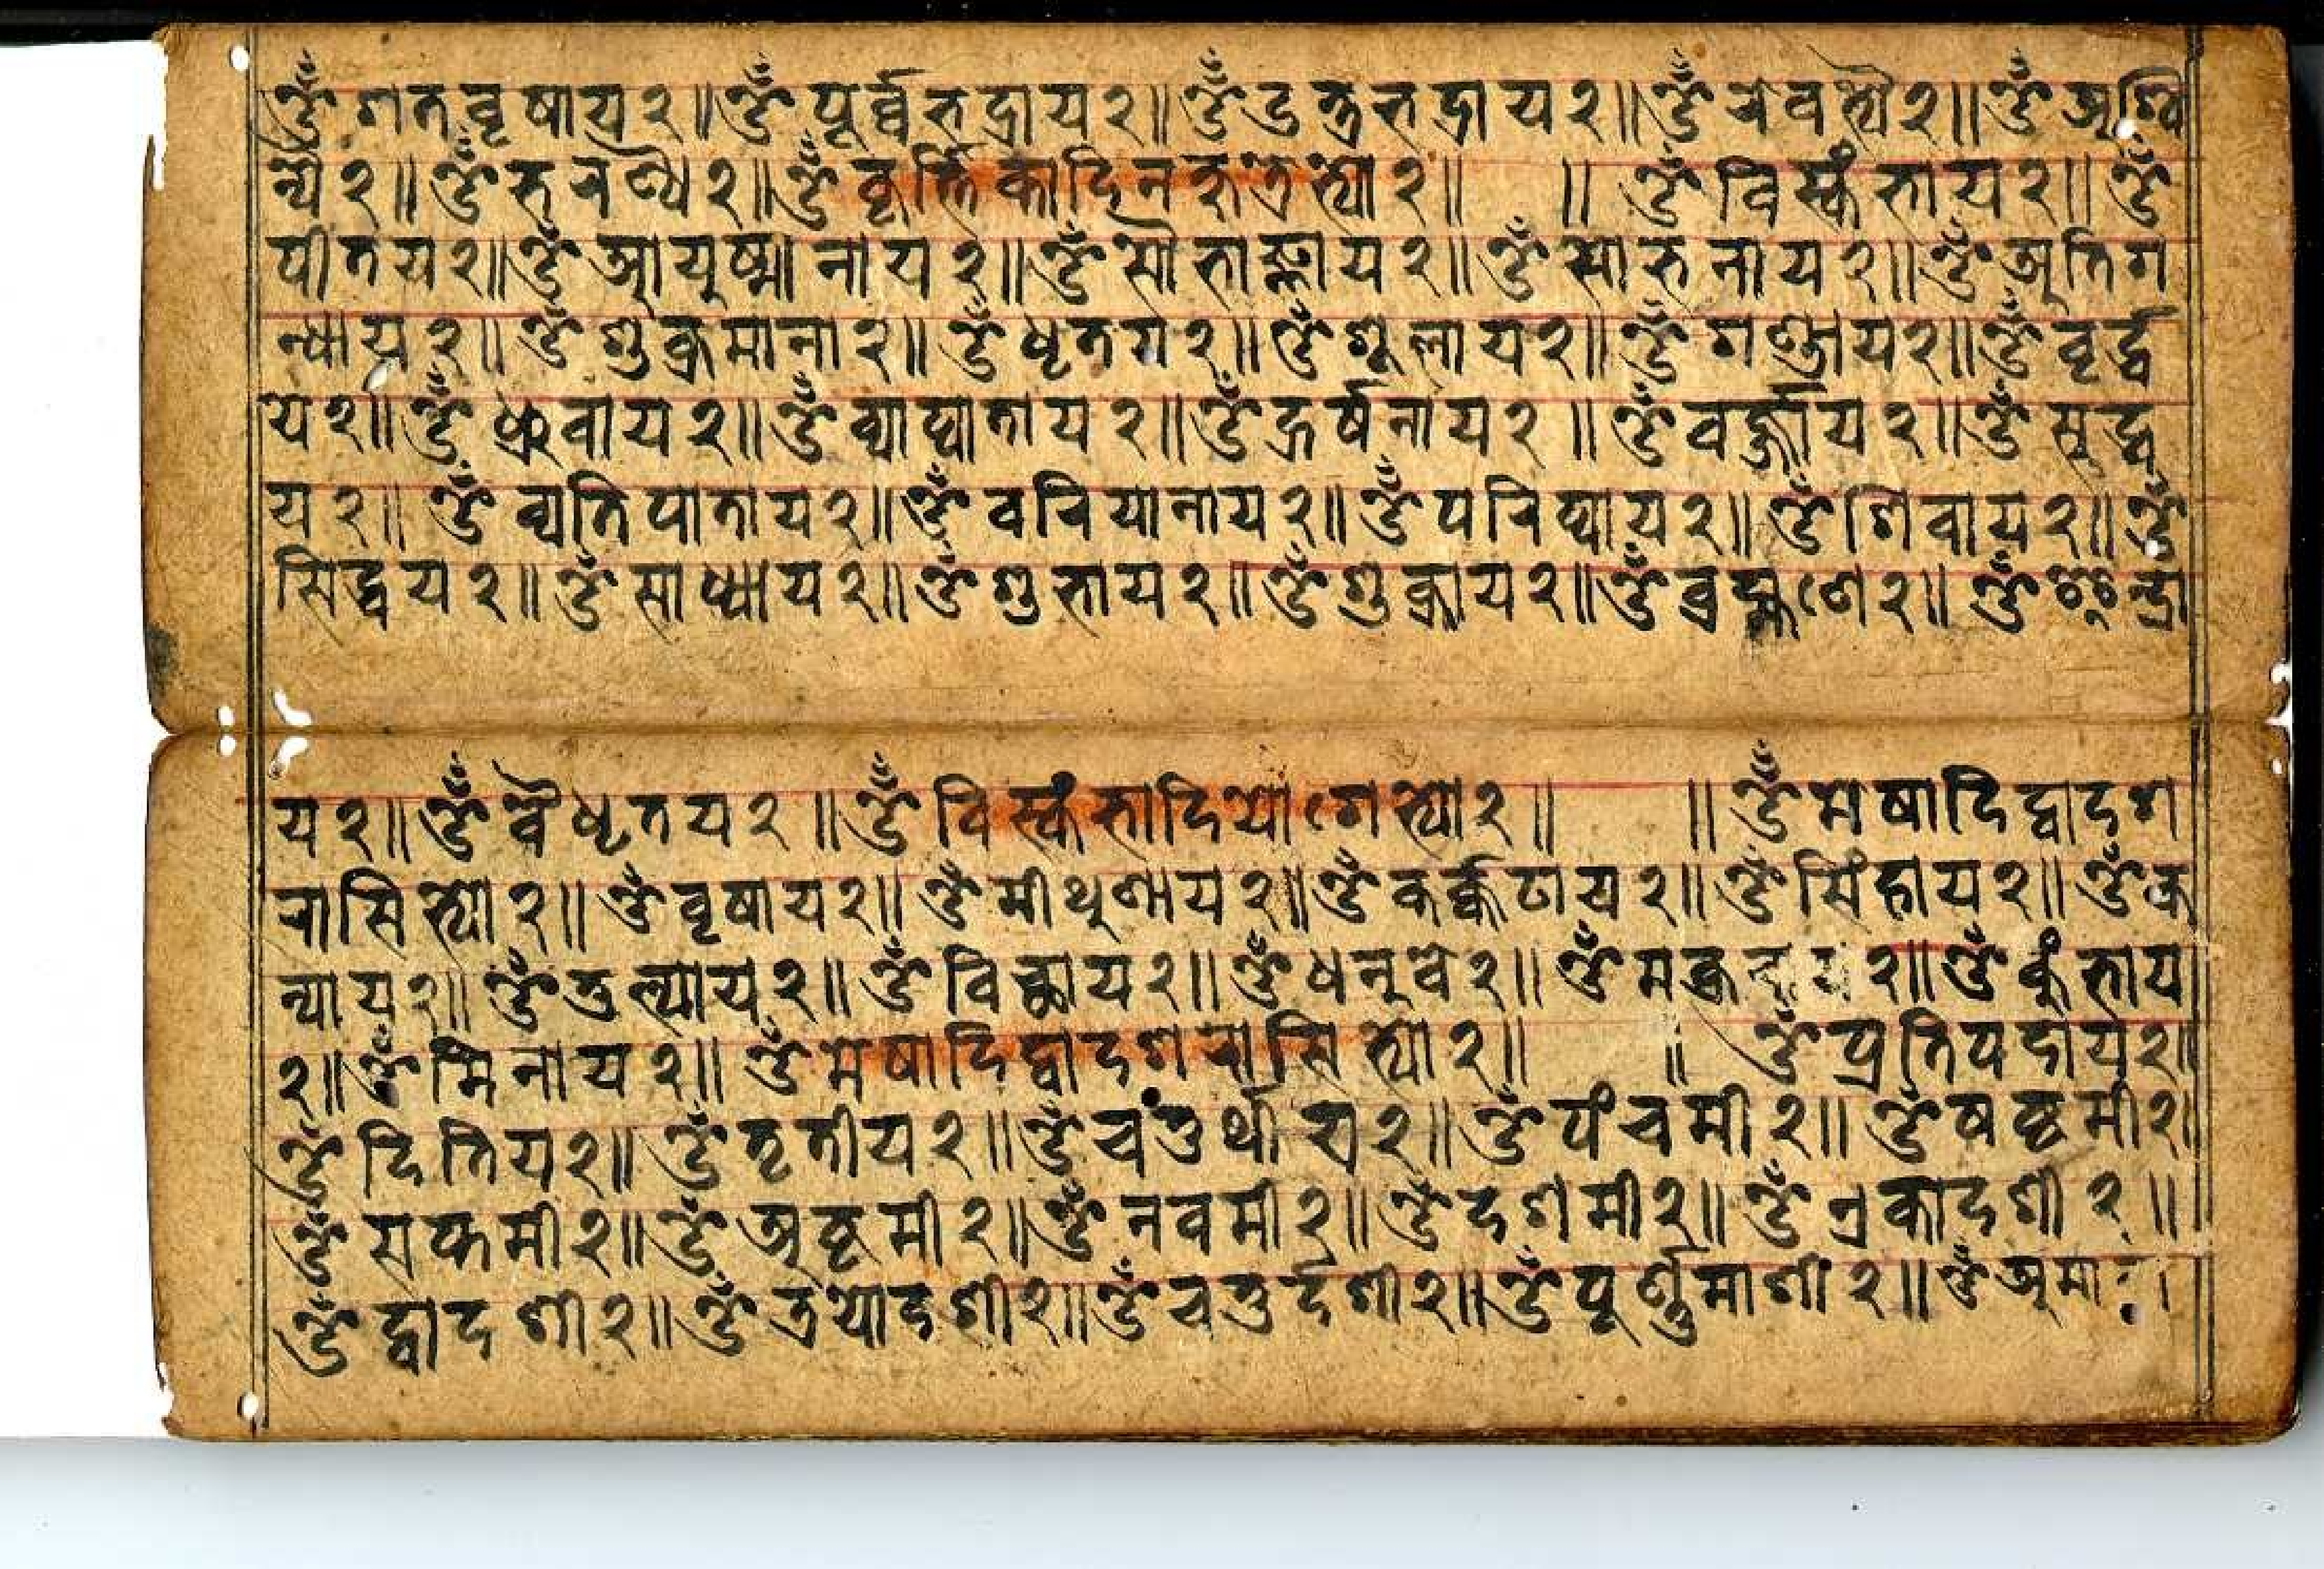 ॐ शतवृषाय२॥ ॐ पूर्व्वभद्राय२॥ ॐ उत्रभद्राय२॥ ॐ रेवत्यै२॥ ॐ अश्वि
न्यै२॥ ॐ भरण्यै२॥ ॐ कृर्त्तिकादिनक्षत्रेभ्यो२॥ ॥ ॐ विस्कंभाय२॥ ॐ
पीतय२॥ ॐ आयुष्मानाय२॥ ॐ सौभाग्याय२॥ ॐ सोभनाय२॥ ॐ अतिग
न्धाय२॥ ॐ शुक्रमाना२॥ ॐ धृतय२॥ ॐ शूलाय२॥ ॐ गण्डाय२॥ ॐ वृर्द्ध
य२॥ ॐ ध्रुवाय२॥ ॐ व्याघाताय२॥ ॐ हर्षनाय२॥ ॐ वर्ज्राय२॥ ॐ सुद्ध
य२॥ ॐ व्यतिपाताय२॥ ॐ वरियानाय२॥ ॐ परिघाय२॥ ॐ शिवाय२॥ ॐ
सिद्धय२॥ ॐ साध्याय२॥ ॐ शुभाय२॥ ॐ शुक्राय२॥ ॐ ब्रह्मणे२॥ ॐ इन्द्रा
य२॥ ॐ वैधृतय२॥ ॐ विस्कंभादियोगेभ्यो२॥ ॥ ॐ मेषादिद्वादश
रासिभ्यो२॥ ॐ वृषाय२॥ ॐ मीथुणाय२॥ ॐ कर्क्कटाय२॥ ॐ सिंहाय२॥ ॐ क
न्याय२॥ ॐ तुल्याय२॥ ॐ विछाय२॥ ॐ धनुवे२॥ ॐ २॥ ॐ कुंभाय
२॥ ॐ मिनाय२॥ ॐ मेषादिद्वादशरासिभ्यो२॥ ॥ ॐ प्रतिपदाय२॥
ॐ दितिय२॥ ॐ तृतीय२॥ ॐ चंतुर्थी२॥ ॐ पंचमी२॥ ॐ षष्ठमी२॥
ॐ सप्तमी२॥ ॐ अष्टमी२॥ ॐ नवमी२॥ ॐ दशमी२॥ ॐ एकादशी२॥
ॐ द्वादशी२॥ ॐ त्रयोदशी२॥ ॐ चतुर्दशी२॥ ॐ पूर्ण्णमाशी२॥ ॐ अमा